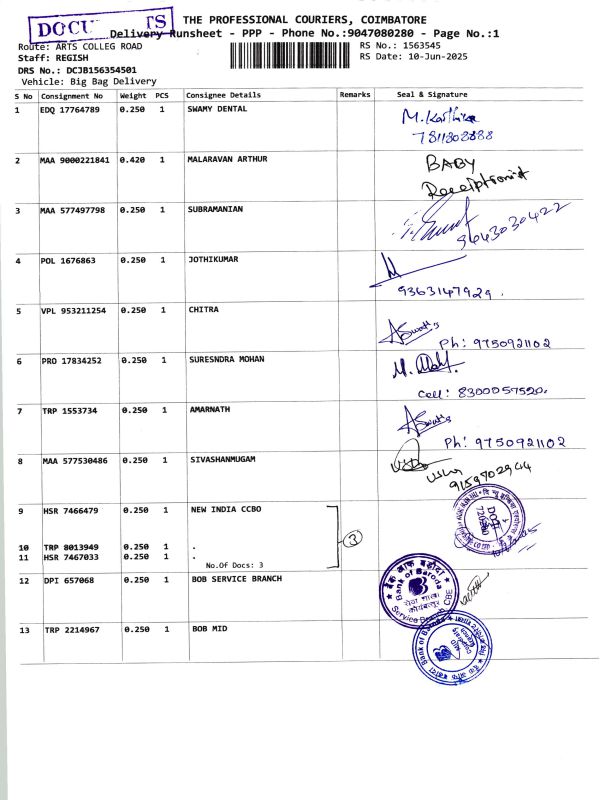 THE PROFESSIONAL COURIERS, COIMBATORE
Delivery Runsheet - PPP - Phone No.:9047080280 - Page No.:1
Route: ARTS COLLEG ROAD
RS No.: 1563545
Staff: REGISH
RS Date: 10-Jun-2025
DRS No.: DCJB156354501
Vehicle: Big Bag Delivery
S No Consignment No Weight PCS Consignee Details Remarks Seal & Signature
1 EDQ 17764789 0.250 1 SWAMY DENTAL M. Karthika
7811308888
2 MAA 9000221841 0.420 1 MALARAVAN ARTHUR BABY
Receiptionist
3 MAA 577497798 0.250 1 SUBRAMANIAN
9643030422
4 POL 1676863 0.250 1 JOTHIKUMAR
9363147929.
5 VPL 953211254 0.250 1 CHITRA
Ph: 9750921102
6 PRO 17834252 0.250 1 SURESNDRA MOHAN
Cell: 8300057520.
7 TRP 1553734 0.250 1 AMARNATH
Ph: 9750921102
8 MAA 577530486 0.250 1 SIVASHANMUGAM
9159702944
9 HSR 7466479 0.250 1 NEW INDIA CCBO
10 TRP 8013949 0.250 1 .
11 HSR 7467033 0.250 1 .
3
No.Of Docs: 3
12 DPI 657068 0.250 1 BOB SERVICE BRANCH
बैंक ऑफ बड़ौदा
Bank of Baroda
सेवा शाखा
कोयंबत्तूर
Service Branch, CBE
13 TRP 2214967 0.250 1 BOB MID
Bank of Baroda